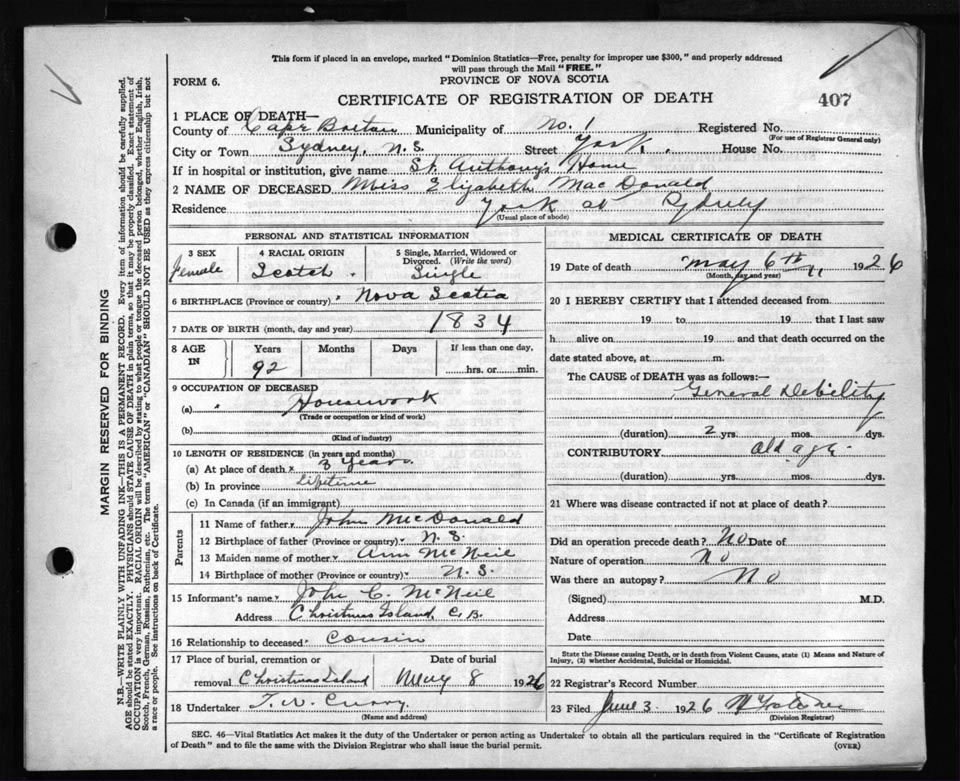 This form if placed in an envelope, marked "Dominion Statistics—Free, penalty for improper use $300," and properly addressed
will pass through the Mail "FREE."
FORM 6.
PROVINCE OF NOVA SCOTIA
CERTIFICATE OF REGISTRATION OF DEATH
407
1 PLACE OF DEATH—
County of Cape Breton Municipality of No. 1 Registered No.
(For use of Registrar General only)
City or Town Sydney, N.S. Street York. House No.
If in hospital or institution, give name St. Anthony's Home
2 NAME OF DECEASED Miss Elizabeth MacDonald
Residence York at Sydney
(Usual place of abode)
PERSONAL AND STATISTICAL INFORMATION
3 SEX
Female
4 RACIAL ORIGIN
Scotch.
5 Single, Married, Widowed or
Divorced. (Write the word)
Single
6 BIRTHPLACE (Province or country) Nova Scotia
7 DATE OF BIRTH (month, day and year) 1834
8 AGE IN
Years Months Days If less than one day,
92 hrs. or min.
9 OCCUPATION OF DECEASED
(a) Housework
(Trade or occupation or kind of work)
(b)
(Kind of industry)
10 LENGTH OF RESIDENCE (in years and months)
(a) At place of death 3 Years
(b) In province Lifetime
(c) In Canada (if an immigrant)
Parents
11 Name of father John McDonald
12 Birthplace of father (Province or country) N.S.
13 Maiden name of mother Ann McNeil
14 Birthplace of mother (Province or country) N.S.
15 Informant's name John C. McNeil
Address Christmas Island, C.B.
16 Relationship to deceased Cousin
17 Place of burial, cremation or Date of burial
removal Christmas Island May 8 1926
18 Undertaker T. W. Curry
(Name and address)
MEDICAL CERTIFICATE OF DEATH
19 Date of death May 6th 1926
(Month, day and year)
20 I HEREBY CERTIFY that I attended deceased from
19 to 19 that I last saw
h alive on 19 and that death occurred on the
date stated above, at m.
The CAUSE of DEATH was as follows:—
General Debility
(duration) 2 yrs. mos. dys.
CONTRIBUTORY Old age
(duration) yrs. mos. dys.
21 Where was disease contracted if not at place of death?
Did an operation precede death? No Date of
Nature of operation No
Was there an autopsy? No
(Signed) M.D.
Address
Date
State the Disease causing Death, or in death from Violent Causes, state (1) Means and Nature of
Injury, (2) whether Accidental, Suicidal or Homicidal.
22 Registrar's Record Number
23 Filed June 3. 1926
(Division Registrar)
SEC. 46—Vital Statistics Act makes it the duty of the Undertaker or person acting as Undertaker to obtain all the particulars required in the "Certificate of Registration
of Death" and to file the same with the Division Registrar who shall issue the burial permit. (OVER)
MARGIN RESERVED FOR BINDING
N.B.—WRITE PLAINLY WITH UNFADING INK—THIS IS A PERMANENT RECORD. Every item of information should be carefully supplied.
AGE should be stated EXACTLY. PHYSICIANS should STATE CAUSE OF DEATH in plain terms, so that it may be properly classified. Exact statement of
OCCUPATION is very important. RACIAL ORIGIN will be described by stating to what people or tongue the deceased person belonged, whether English, Irish,
Scotch, French, German, Russian, Ruthenian, etc. The terms "AMERICAN" or "CANADIAN" SHOULD NOT BE USED as they express citizenship but not
a race or people. See instructions on back of Certificate.